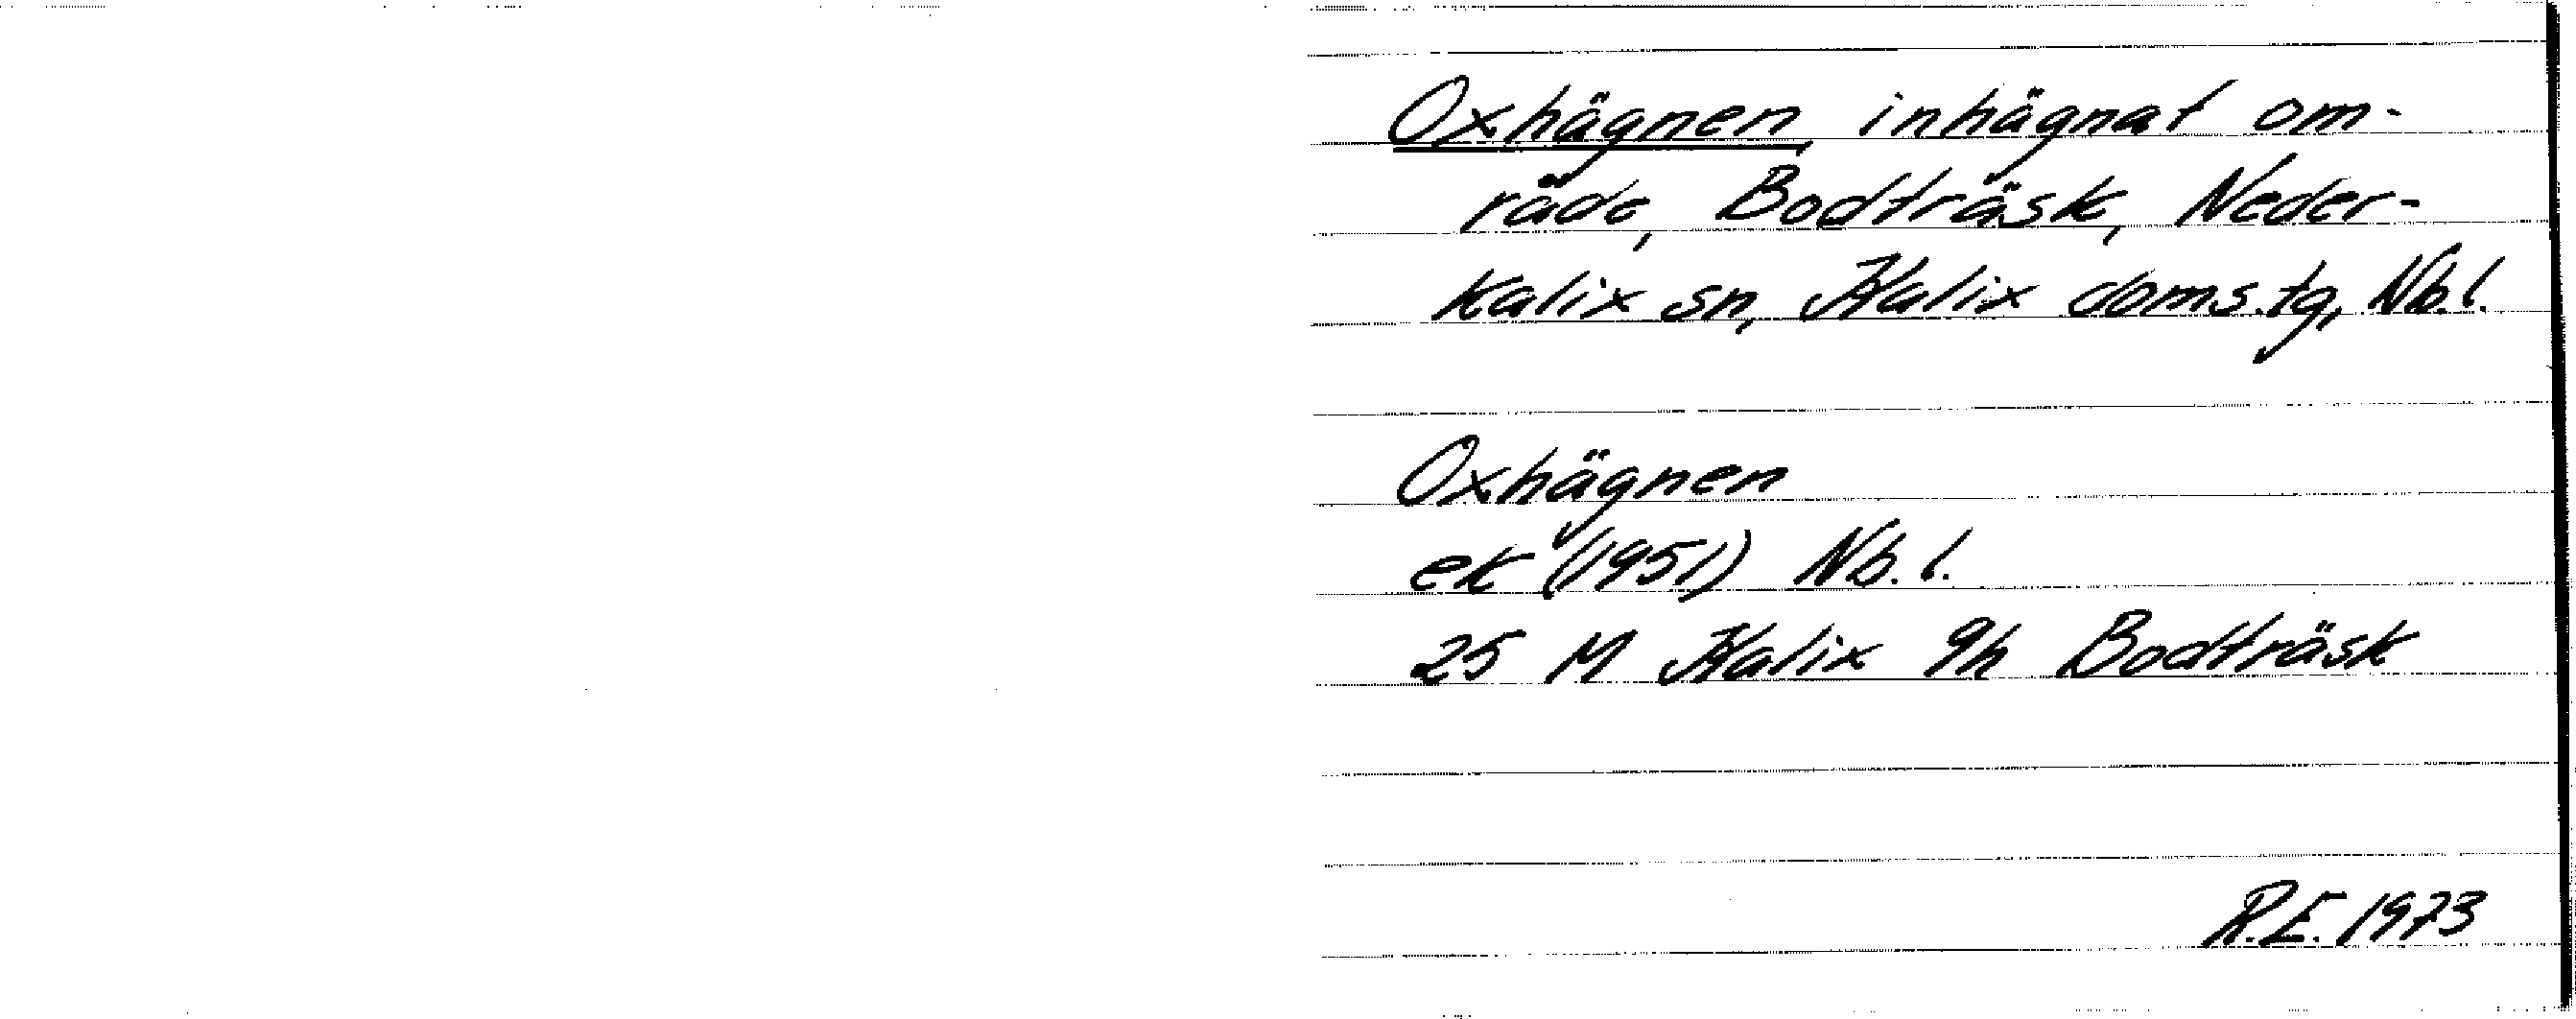 Oxhägnen, inhägnat om-
råde, Bodträsk, Neder-
kalix sn, Kalix doms.tg, Nb.l.
Oxhägnen
ek (1951) Nb.l.
25 M Kalix 9h Bodträsk
R.E. 1973